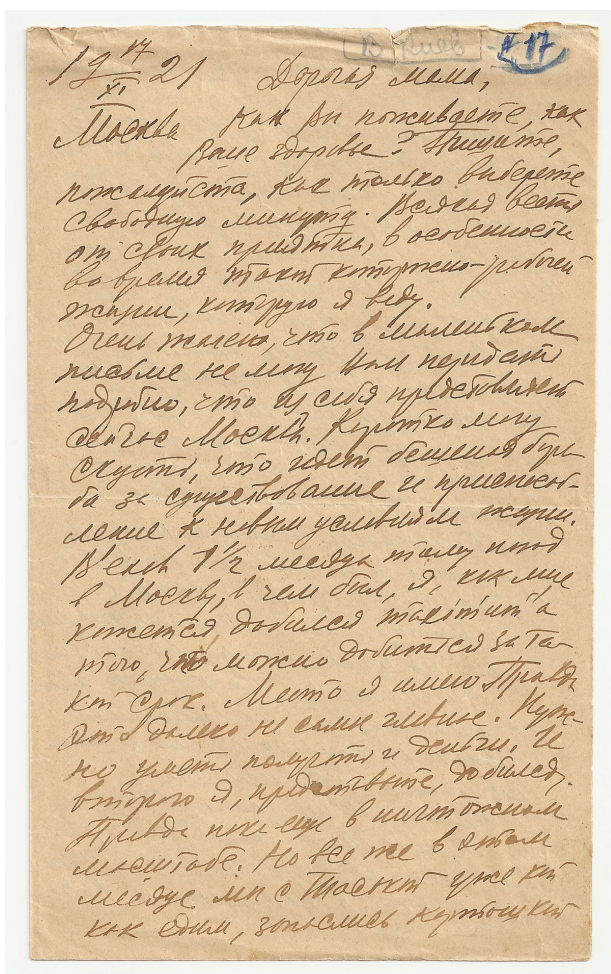 В Киев № 17
19 17/XI 21 Дорогая мама,
Москва Как Вы поживаете, как
Ваше здоровье? Пишите,
пожалуйста, как только выберете
свободную минуту. Всякая весть
от своих приятна, в особенности
во время такой каторжно-рабочей
жизни, которую я веду.
Очень жалею, что в маленьком
письме не могу Вам передать
подробно, что из себя представляет
сейчас Москва. Коротко могу
сказать, что идет бешеная борь-
ба за существование и приспособ-
ление к новым условиям жизни.
Въехав 1 1/2 месяца тому назад
в Москву, в чем был, я, как мне
кажется, добился maximum'a
того, что можно добиться за та-
кой срок. Место я имею. Правда
это далеко не самое главное. Нуж-
но уметь получать и деньги. И
второго я, представьте, добился.
Правда пока еще в ничтожном
масштабе. Но все же в этом
месяце мы с Таськой уже кой
как едим, запаслись картошкой